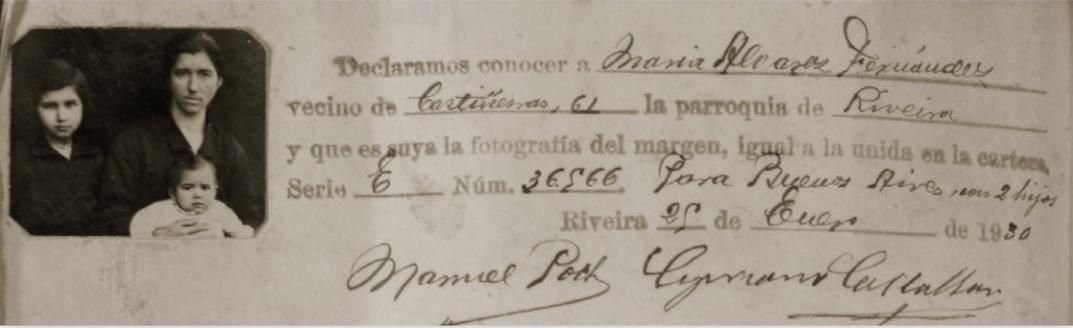 Declaramos conocer a Maria Alvarez Fernández
vecino de Castiñeiras, 61 la parroquia de Riveira
y que es suya la fotografía del margen, igual a la unida en la cartera,
Serie E Núm. 36.566 Para Buenos Aires, con 2 hijos
Riveira 25 de Enero de 1930
Manuel Cipriano